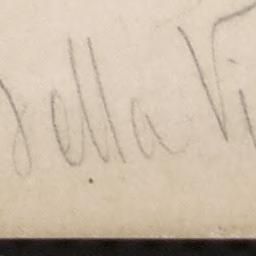 della Vi